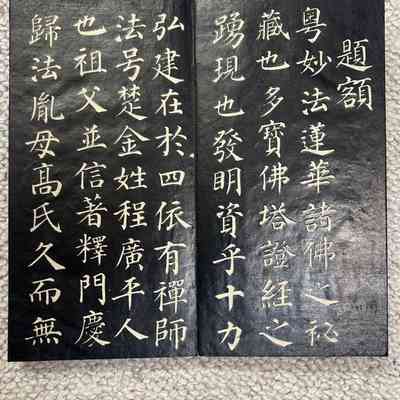 題額
粵妙法蓮華諸佛之祕
藏也多寶佛塔證經之
踴現也發明資乎十力
弘建在於四依有禪師
法号楚金姓程廣平人
也祖父並信著釋門慶
歸法胤母高氏久而無